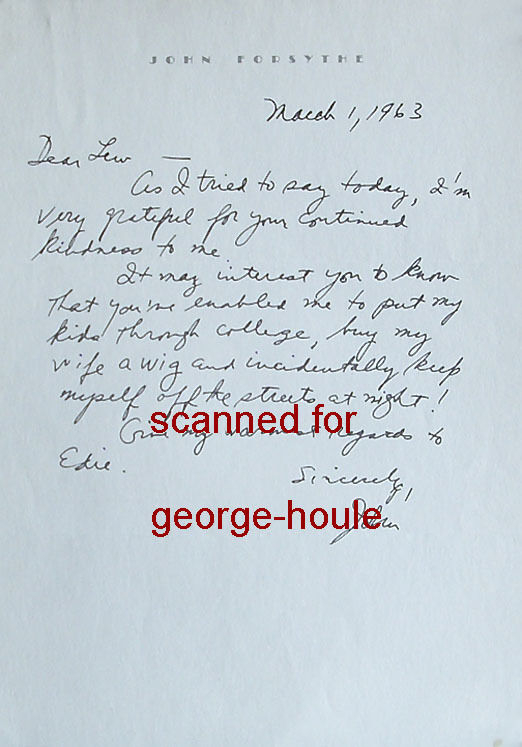 JOHN FORSYTHE
March 1, 1963
Dear Lew —
As I tried to say today, I'm
very grateful for your continued
kindness to me.
It may interest you to know
that you've enabled me to put my
kids through college, buy my
wife a wig and incidentally keep
myself off the streets at night!
scanned for
Give my warmest regards to
Edie.
Sincerely,
george-houle
John